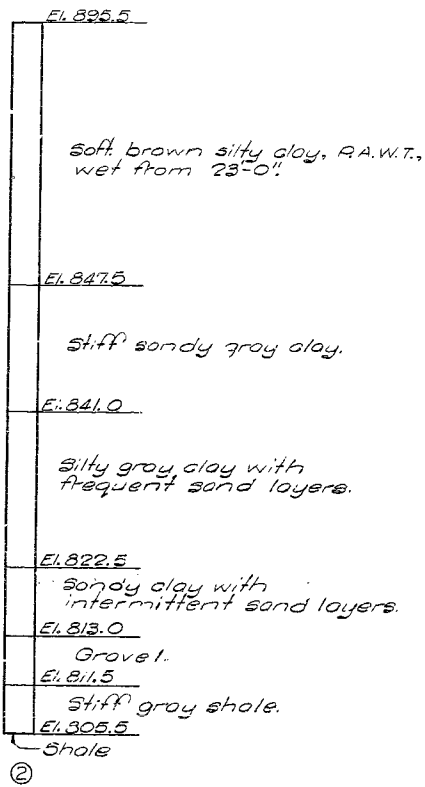 El. 895.5
Soft brown silty clay, P.A.W.T.,
wet from 23'-0".
El. 847.5
Stiff sandy gray clay.
El. 841.0
Silty gray clay with
frequent sand layers.
El. 822.5
Sandy clay with
intermittent sand layers.
El. 813.0
Gravel.
El. 811.5
Stiff gray shale.
El. 805.5
Shale
2